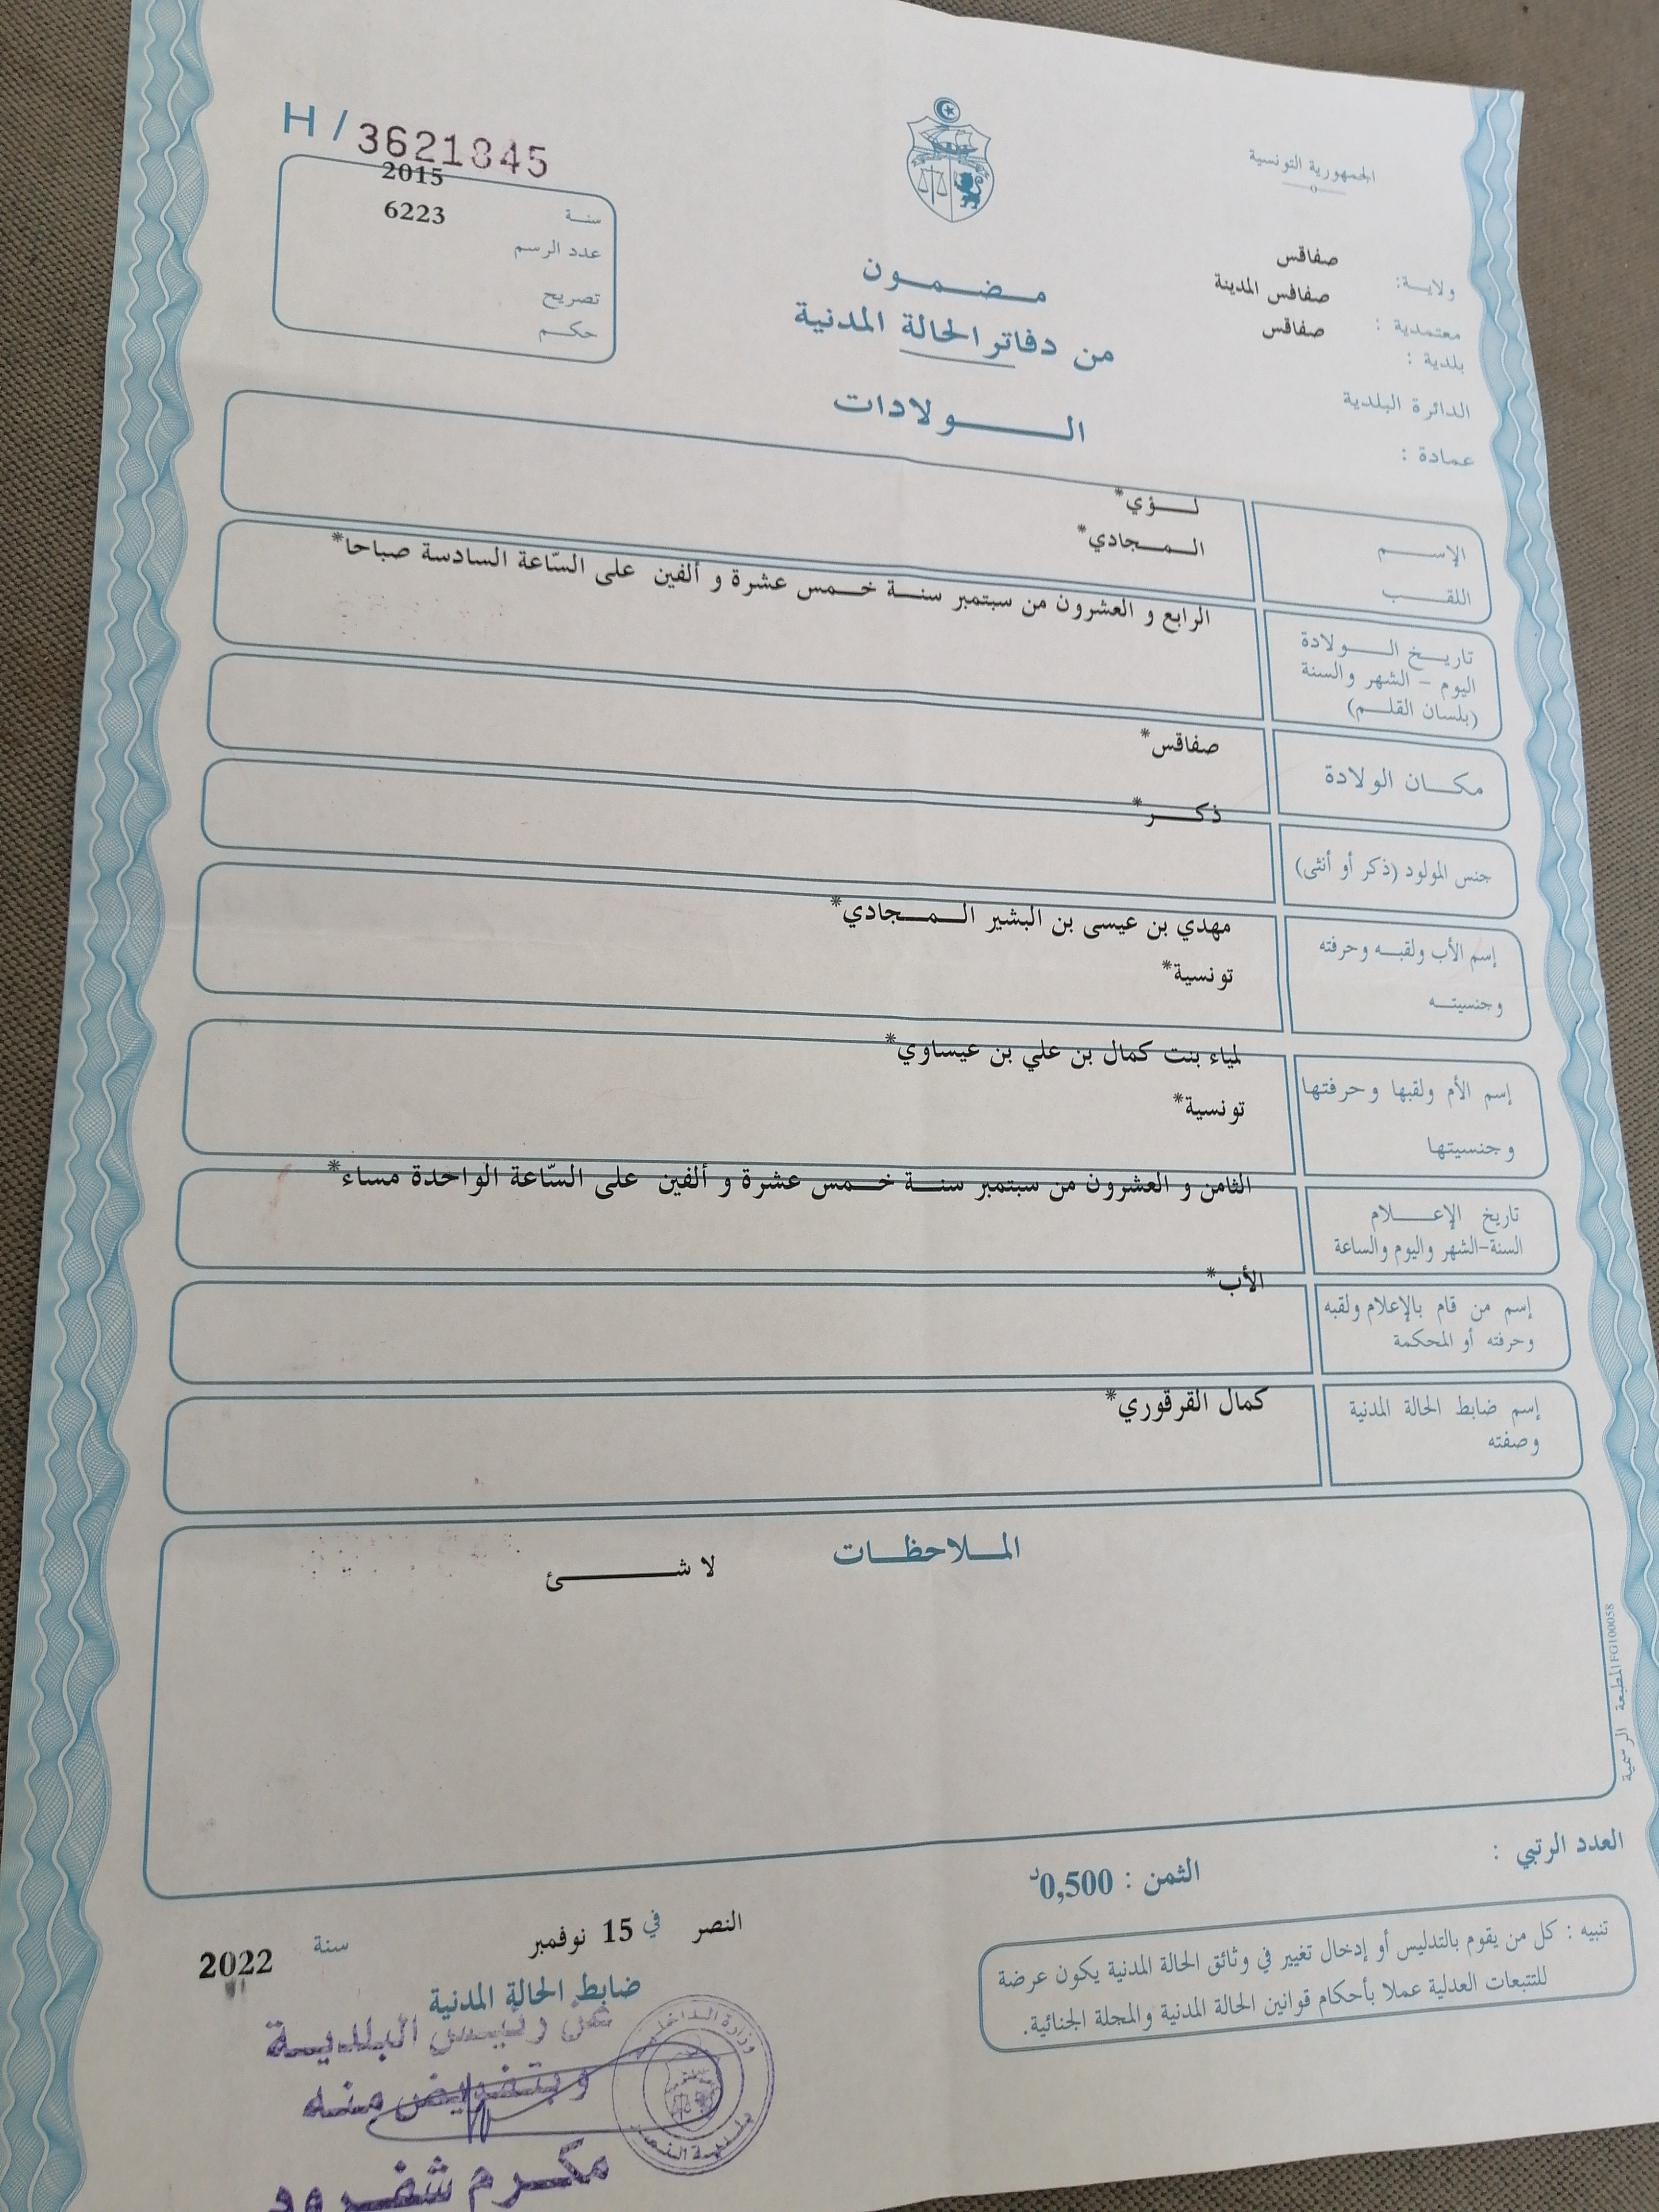 H / 3621845
الجمهورية التونسية
2015
سنة
6223
عدد الرسم
تصريح
حكم
ولاية: صفاقس
معتمدية : صفاقس المدينة
بلدية : صفاقس
الدائرة البلدية
عمادة :
مضمون
من دفاتر الحالة المدنية
الولادات
الإسم لؤي*
اللقب المجادي*
تاريخ الولادة
اليوم - الشهر والسنة
(بلسان القلم)
الرابع و العشرون من سبتمبر سنة خمس عشرة و ألفين على السّاعة السادسة صباحا*
مكان الولادة صفاقس*
جنس المولود (ذكر أو أنثى) ذكر*
إسم الأب ولقبه وحرفته مهدي بن عيسى بن البشير المجادي*
وجنسيته تونسية*
إسم الأم ولقبها وحرفتها لمياء بنت كمال بن علي بن عيساوي*
وجنسيتها تونسية*
تاريخ الإعلام
السنة-الشهر واليوم والساعة
الثامن و العشرون من سبتمبر سنة خمس عشرة و ألفين على السّاعة الواحدة مساء*
إسم من قام بالإعلام ولقبه
وحرفته أو المحكمة
الأب*
إسم ضابط الحالة المدنية
وصفته
كمال القرقوري*
الملاحظات
لا شئ
المطبعة الرسمية FG100058
العدد الرتبي :
الثمن : 0,500د
تنبيه : كل من يقوم بالتدليس أو إدخال تغيير في وثائق الحالة المدنية يكون عرضة
للتتبعات العدلية عملا بأحكام قوانين الحالة المدنية والمجلة الجنائية.
النصر في 15 نوفمبر سنة 2022
ضابط الحالة المدنية
عن رئيس البلدية
وبتفويض منه
مكرم شفرود
وزارة الداخلية
بلدية النصر